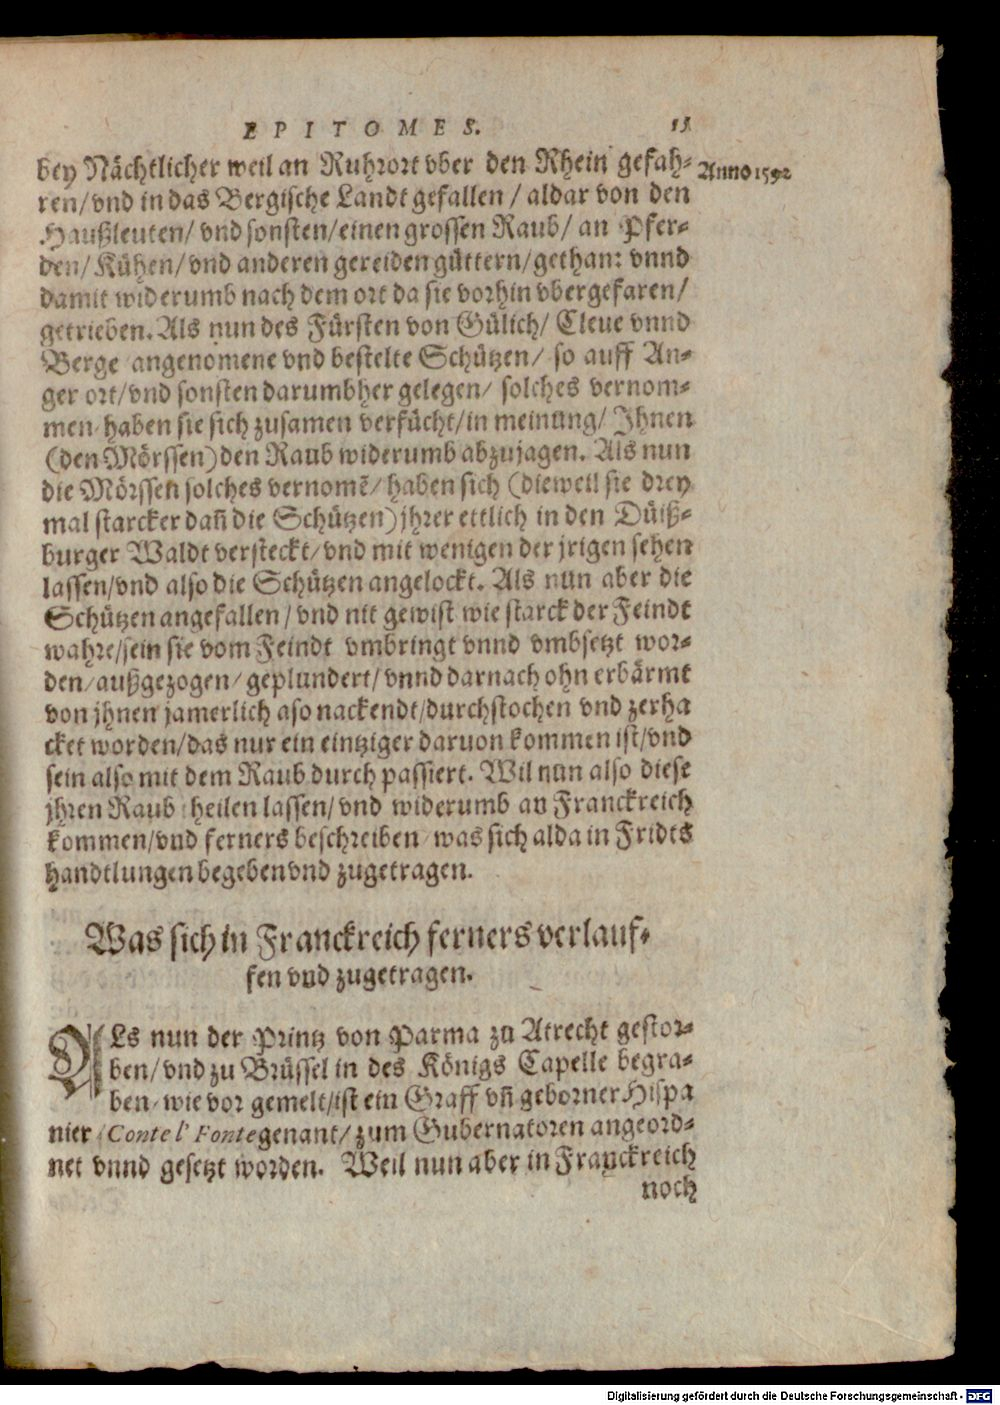 EPITOMES. 15
bey Nächtlicher weil an Ruhrort vber den Rhein gefah-
Anno 1592
ren/vnd in das Bergische Landt gefallen / aldar von den
Haußleuten/ vnd sonsten/einen grossen Raub/ an Pfer-
den/ Kühen/ vnd anderen gereiden güttern/gethan: vnnd
damit widerumb nach dem ort da sie vorhin vbergefaren/
getrieben. Als nun des Fürsten von Gülich/ Cleue vnnd
Berge angenomene vnd bestelte Schützen/ so auff An-
ger ort/vnd sonsten darumbher gelegen/ solches vernom-
men/haben sie sich zusamen verfücht/in meinung/ Jhnen
(den Mörssen) den Raub widerumb abzujagen. Als nun
die Mörssen solches vernomē/ haben sich (dieweil sie drey
mal starcker dañ die Schützen) jhrer ettlich in den Düiß-
burger Waldt versteckt/vnd mit wenigen der jrigen sehen
lassen/vnd also die Schützen angelockt. Als nun aber die
Schützen angefallen / vnd nit gewist wie starck der Feindt
wahre/sein sie vom Feindt vmbringt vnnd vmbsetzt wor-
den/außgezogen/ geplundert/ vnnd darnach ohn erbärmt
von jhnen jamerlich aso nackendt/durchstochen vnd zerha
cket worden/das nur ein eintziger daruon kommen ist/vnd
sein also mit dem Raub durch passiert. Wil nun also diese
jhren Raub heilen lassen/ vnd widerumb an Franckreich
kommen/vnd ferners beschreiben was sich alda in Fridts
handtlungen begeben vnd zugetragen.
Was sich in Franckreich ferners verlauf-
fen vnd zugetragen.
ALs nun der Printz von Parma zu Atrecht gestor-
ben/ vnd zu Brüssel in des Königs Capelle begra-
ben/wie vor gemelt/ist ein Graff vñ geborner Hispa
nier (Conte l' Fonte genant/ zum Gubernatoren angeord-
net vnnd gesetzt worden. Weil nun aber in Franckreich
noch
Digitalisierung gefördert durch die Deutsche Forschungsgemeinschaft - DFG